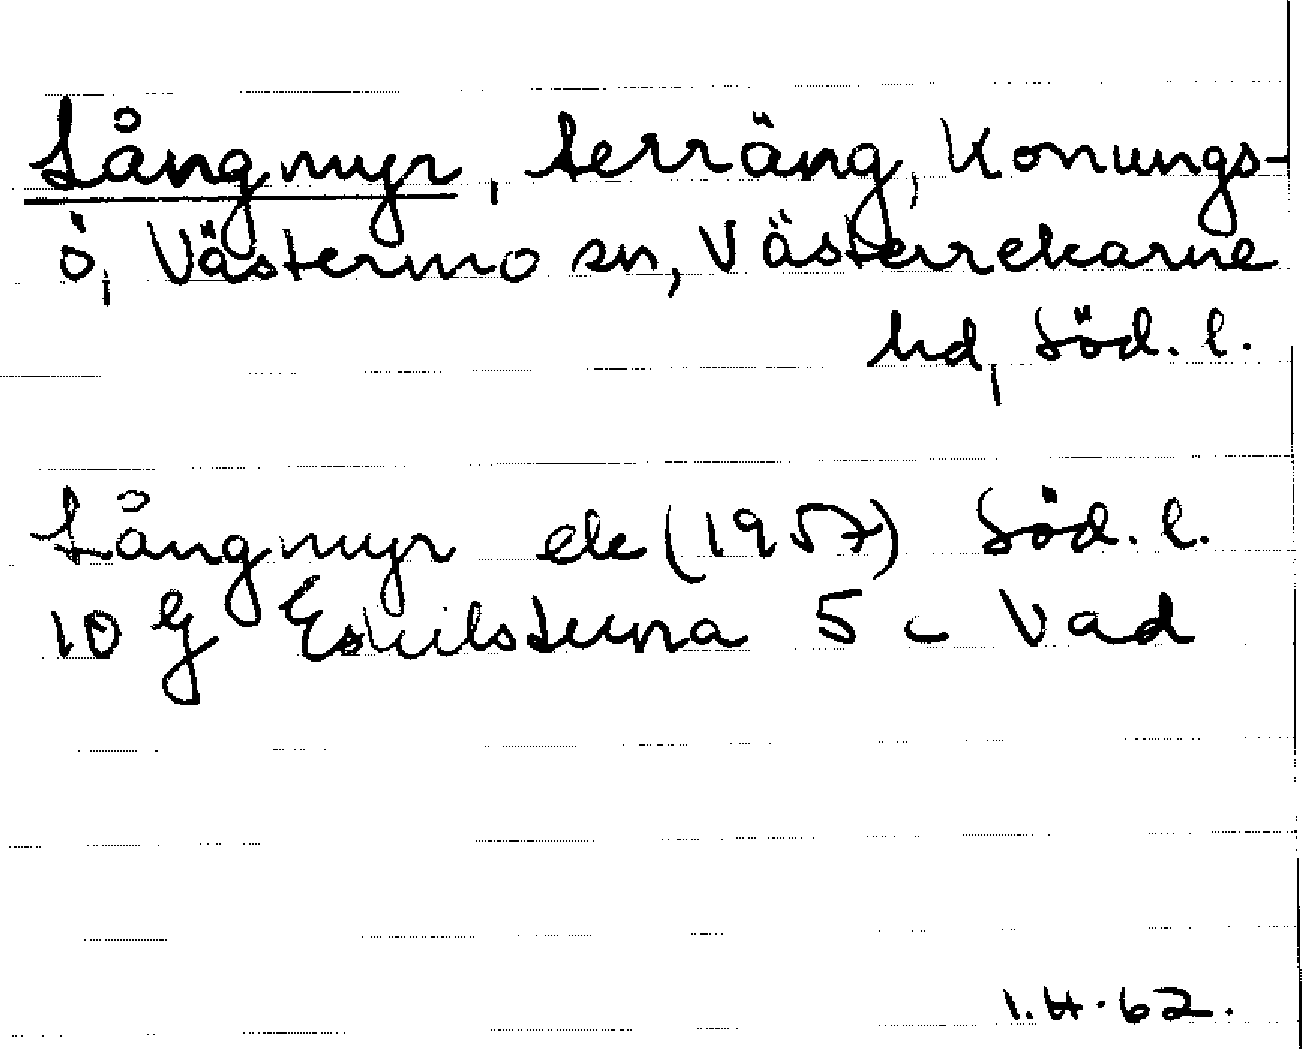 Långmyr, terräng, Konungs-
ö, Västermo sn, Västerrekarne
hd, Söd. l.
Långmyr ek (1957) Söd. l.
10 G Eskilstuna 5 c Vad
I.H. 62.